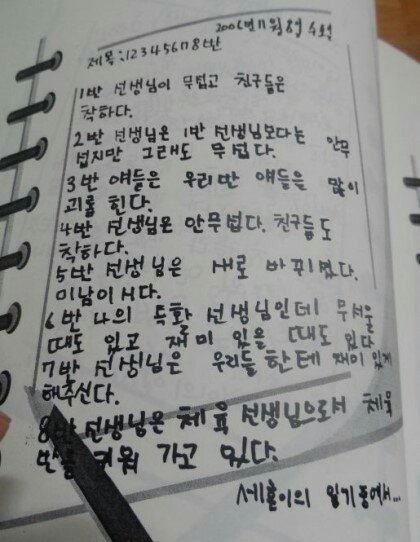 2006년 11월 8일 수요일
제목:12345678반
1반 선생님이 무섭고 친구들은
착하다.
2반 선생님은 1반 선생님보다는 안무
섭지만 그래도 무섭다.
3반 얘들은 우리반 얘들을 많이
괴롭힌다.
4반 선생님은 안무섭다. 친구들도
착하다.
5반 선생님은 새로 바뀌셨다.
미남이시다.
6반 나의 독화 선생님인데 무서울
때도 있고 재미 있을 때도 있다
7반 선생님은 우리들 한테 재미 있게
해주신다.
8반 선생님은 체육 선생님으로서 체육
반을 키워 가고 있다.
세훈이의 일기중에서...